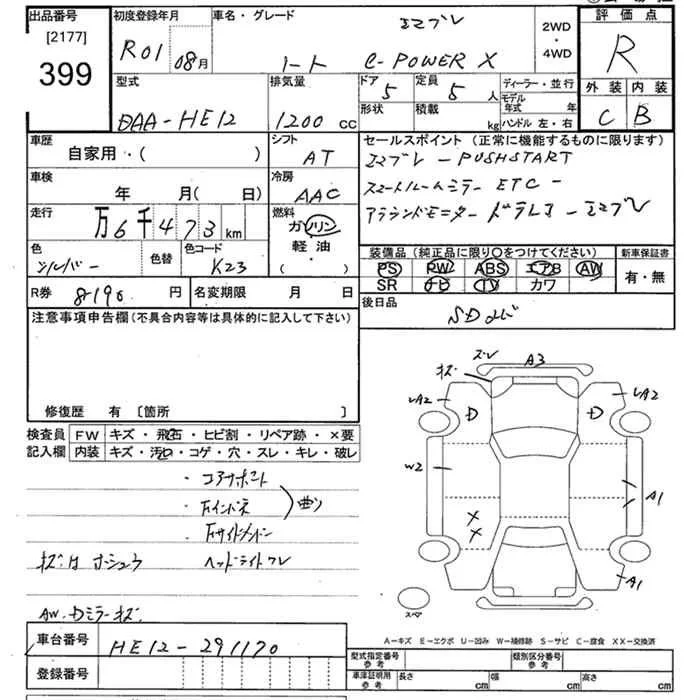 出品番号
[2177]
399
初度登録年月
R01 08月
車名・グレード
エマブレ
ノート e-POWER X
2WD
・
4WD
評価点
R
外装 内装
C B
型式
DAA-HE12
排気量
1200 cc
ドア
5
定員
5 人
形状
積載
kg
ディーラー・並行
モデル年式 年
ハンドル 左・右
車歴
自家用・( )
シフト
AT
車検
年 月( 日)
冷房
AAC
走行
万6千473km
燃料
ガソリン
軽油・
( )
色
シルバー
色替
色コードー
K23
R券
8190 円
名変期限 月 日
セールスポイント (正常に機能するものに限ります)
エマブレ - PUSHSTART
スマートルームミラー ETC-
アラウンドモニター ドラレコ - エマブレ
装備品 (純正品に限り○をつけてください)
PS PW ABS エアB AW
SR ナビ TV カワ
新車保証書
有・無
後日品
SDナビ
注意事項申告欄 (不具合内容等は具体的に記入して下さい)
修復歴 有 [箇所 ]
検査員
記入欄
FW キズ・飛石・ヒビ割・リペア跡・×要
内装 キズ・汚れ・コゲ・穴・スレ・キレ・破レ
・コアサポート
・Fインパネ
・Fサイドメンバー
曲り
キズ有 ホシュウ
ヘッドライトワレ
AW. Dミラーキズ
車台番号
HE12-291170
登録番号
ズレ
A3
キズ
UA2
D
D
UA2
W2
A1
×
×
A1
スペア
A－キズ E－エクボ U－凹み W－補修跡 S－サビ C－腐食 XX－交換済
型式指定番号
参考
類別区分番号
参考
車庫証明用
参考
長さ cm
幅 cm
高さ cm